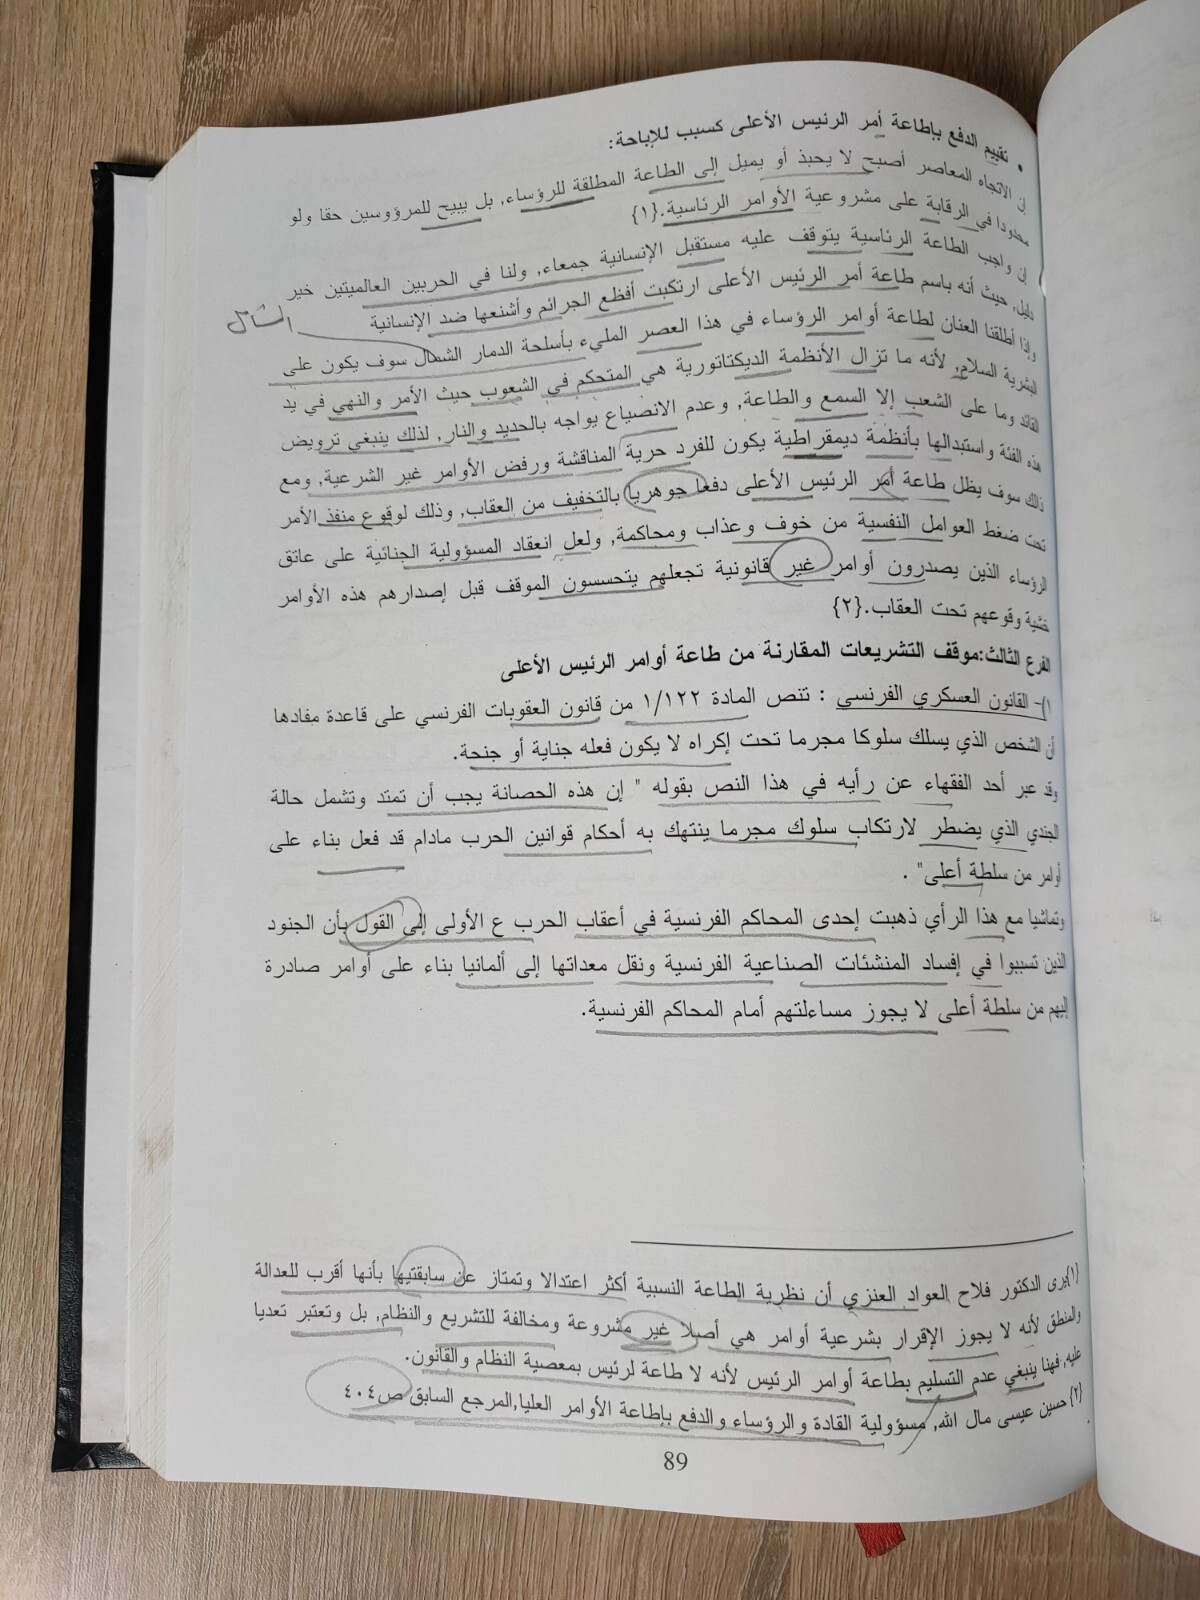 • تقييم الدفع بإطاعة أمر الرئيس الأعلى كسبب للإباحة:
إن الاتجاه المعاصر أصبح لا يحبذ أو يميل إلى الطاعة المطلقة للرؤساء, بل يبيح للمرؤوسين حقا ولو
محدودا في الرقابة على مشروعية الأوامر الرئاسية.{١}
إن واجب الطاعة الرئاسية يتوقف عليه مستقبل الإنسانية جمعاء, ولنا في الحربين العالميتين خير
دليل, حيث أنه باسم طاعة أمر الرئيس الأعلى ارتكبت أفظع الجرائم وأشنعها ضد الإنسانية
الشامل
وإذا أطلقنا العنان لطاعة أوامر الرؤساء في هذا العصر المليء بأسلحة الدمار الشمال سوف يكون على
البشرية السلام, لأنه ما تزال الأنظمة الديكتاتورية هي المتحكم في الشعوب حيث الأمر والنهي في يد
القائد وما على الشعب إلا السمع والطاعة, وعدم الانصياع يواجه بالحديد والنار, لذلك ينبغي ترويض
هذه الفئة واستبدالها بأنظمة ديمقراطية يكون للفرد حرية المناقشة ورفض الأوامر غير الشرعية, ومع
ذلك سوف يظل طاعة أمر الرئيس الأعلى دفعا جوهريا بالتخفيف من العقاب, وذلك لوقوع منفذ الأمر
تحت ضغط العوامل النفسية من خوف وعذاب ومحاكمة, ولعل انعقاد المسؤولية الجنائية على عاتق
الرؤساء الذين يصدرون أوامر غير قانونية تجعلهم يتحسسون الموقف قبل إصدارهم هذه الأوامر
خشية وقوعهم تحت العقاب.{٢}
الفرع الثالث:موقف التشريعات المقارنة من طاعة أوامر الرئيس الأعلى
١)- القانون العسكري الفرنسي : تنص المادة ١/١٢٢ من قانون العقوبات الفرنسي على قاعدة مفادها
أن الشخص الذي يسلك سلوكا مجرما تحت إكراه لا يكون فعله جناية أو جنحة.
وقد عبر أحد الفقهاء عن رأيه في هذا النص بقوله " إن هذه الحصانة يجب أن تمتد وتشمل حالة
الجندي الذي يضطر لارتكاب سلوك مجرما ينتهك به أحكام قوانين الحرب مادام قد فعل بناء على
أوامر من سلطة أعلى" .
وتماشيا مع هذا الرأي ذهبت إحدى المحاكم الفرنسية في أعقاب الحرب ع الأولى إلى القول بأن الجنود
الذين تسببوا في إفساد المنشئات الصناعية الفرنسية ونقل معداتها إلى ألمانيا بناء على أوامر صادرة
إليهم من سلطة أعلى لا يجوز مساءلتهم أمام المحاكم الفرنسية.
{١}يرى الدكتور فلاح العواد العنزي أن نظرية الطاعة النسبية أكثر اعتدالا وتمتاز عن سابقتيها بأنها أقرب للعدالة
والمنطق لأنه لا يجوز الإقرار بشرعية أوامر هي أصلا غير مشروعة ومخالفة للتشريع والنظام, بل وتعتبر تعديا
عليه, فهنا ينبغي عدم التسليم بطاعة أوامر الرئيس لأنه لا طاعة لرئيس بمعصية النظام والقانون.
{٢} حسين عيسى مال الله, مسؤولية القادة والرؤساء والدفع بإطاعة الأوامر العليا,المرجع السابق ص٤٠٤
89